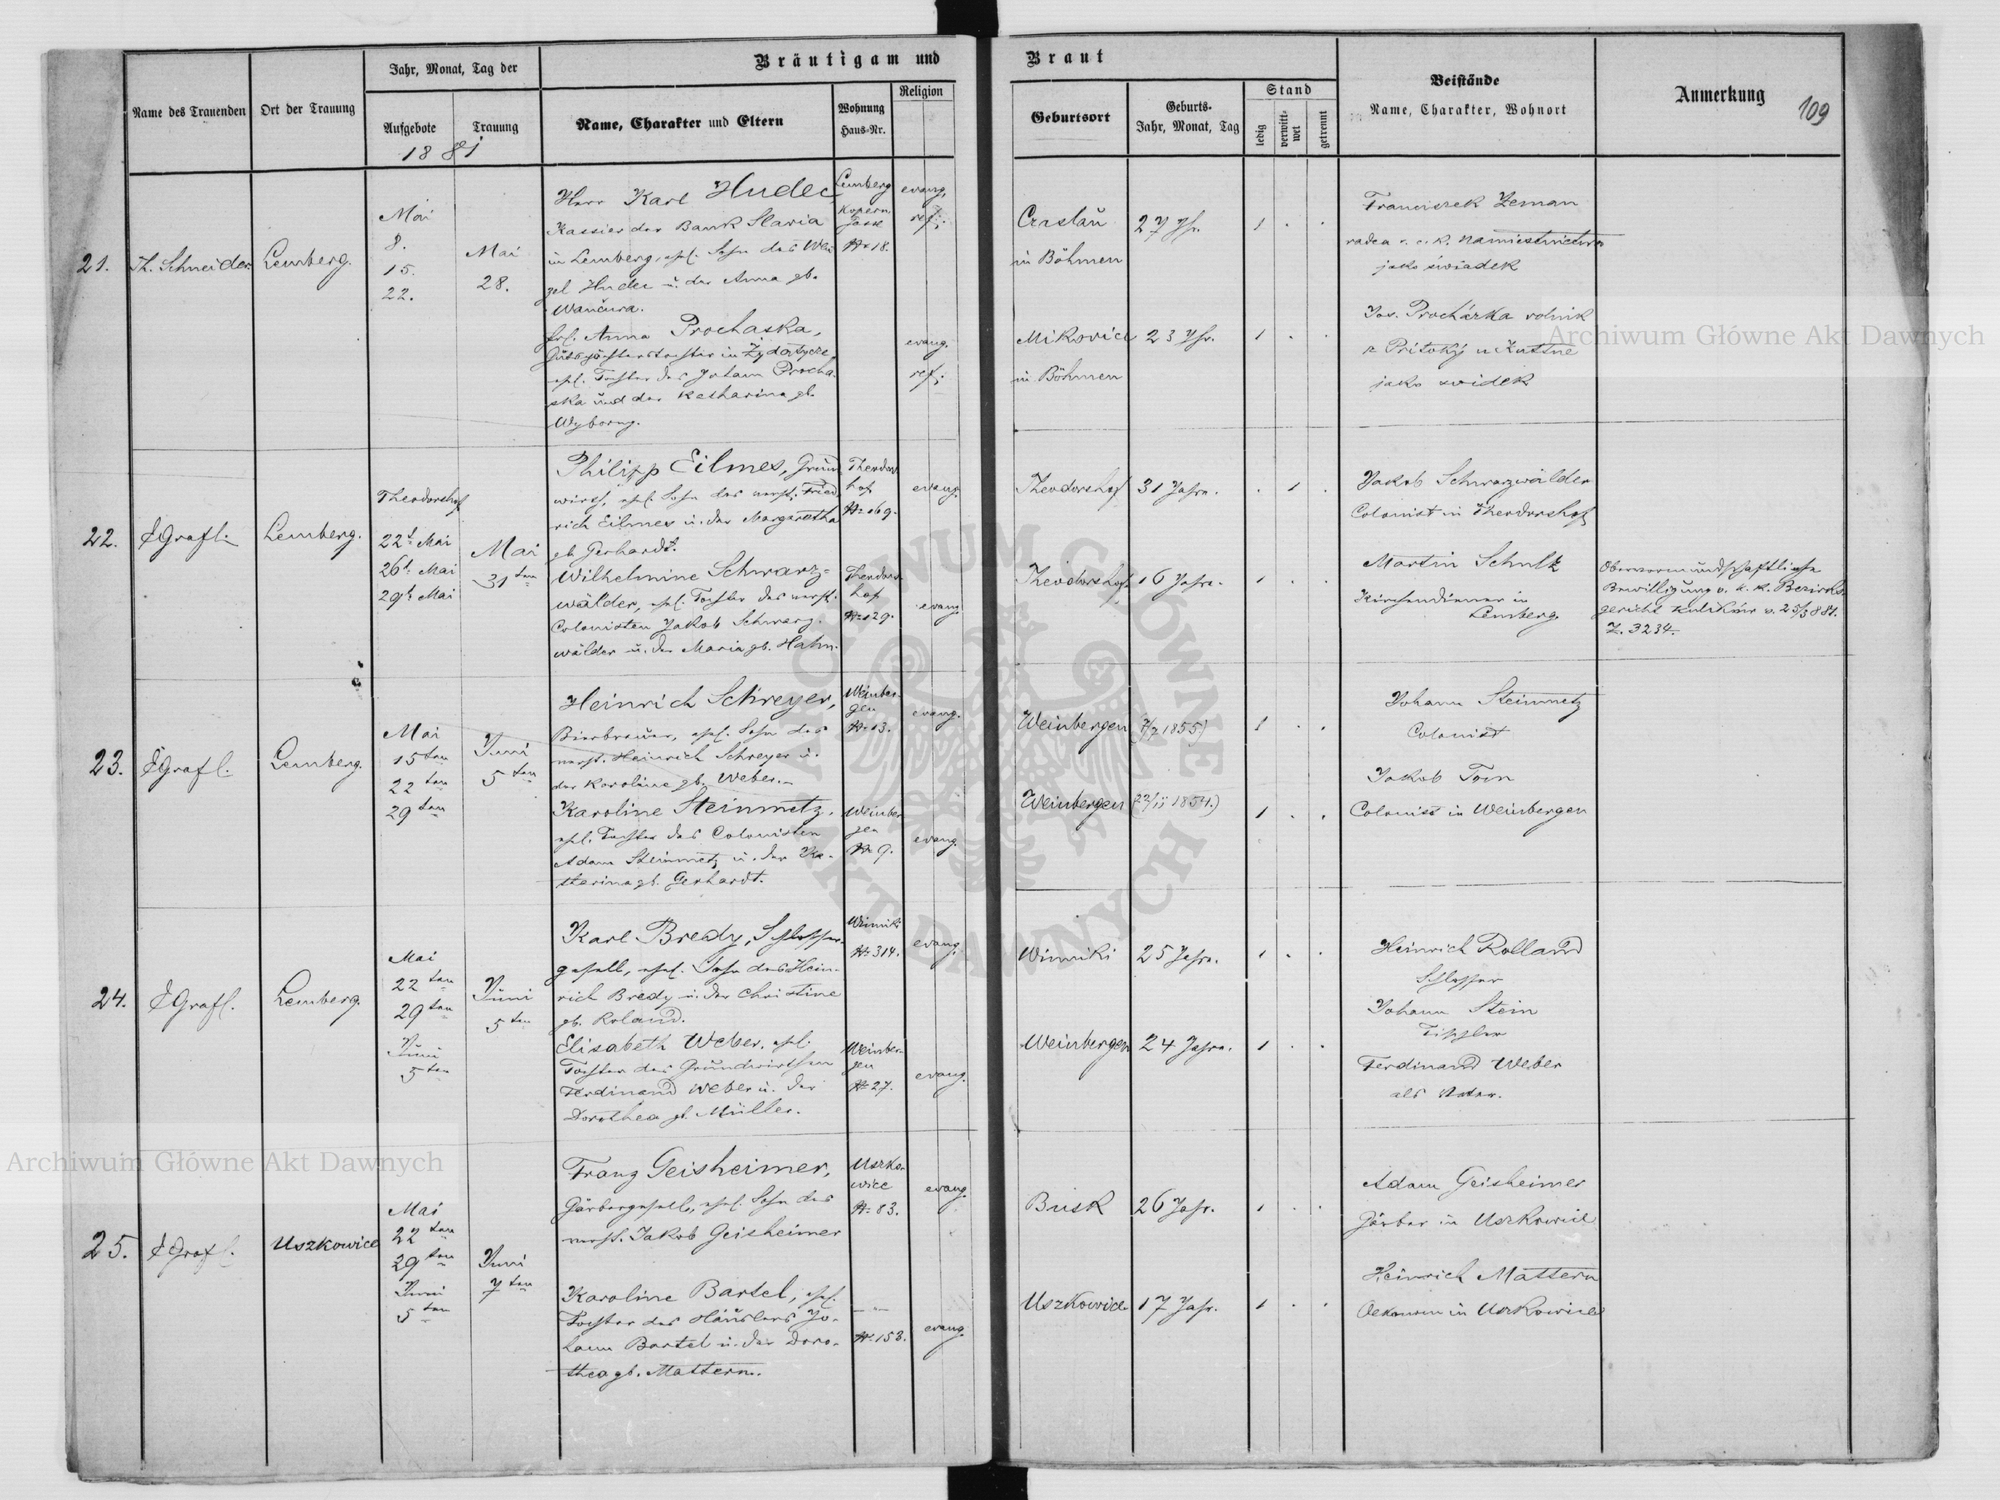 Bräutigam und
Braut
Name des Trauenden
Ort der Trauung
Jahr, Monat, Tag der
Aufgebote
Trauung
1881
Name, Charakter und Eltern
Wohnung
Haus-Nr.
Religion
Geburtsort
Geburts-
Jahr, Monat, Tag
Stand
ledig
verwitt-
wet
getrennt
Beistände
Name, Charakter, Wohnort
Anmerkung
109
21.
Schneider
Lemberg.
Mai
8.
15.
22.
Mai
28.
Herr Karl Hudec
Kassier der Bank Slavia
in Lemberg, ehel. Sohn des Wen
zel Hudec u. der Anna gb.
Wančura.
Lemberg
Kopern.
Gasse
Nr 18.
evang.
ref.
Craslau
in Böhmen
27 Jh.
1 . .
Franciszek Zeman
radca c. k. namiestnictwa
jako świadek
Frl. Anna Prochaska,
ehel. Tochter des Johann Procha-
ska und der Katharina gb.
Wyborny.
evang.
ref.
Mikovice
in Böhmen
23 Jhr.
1 . .
Jos. Procházka rolnik
z Pritoký u Kuttne
jako swidek
22.
Grafl.
Lemberg.
Theodorshof
22t Mai
26t Mai
29t Mai
Mai
31ten
Philipp Eilmes, Grund
wirth, ehel. Sohn des verst. Fried
rich Eilmes u. der Margaretha
gb. Gerhardt.
Theodors
hof
Nr 69.
evang.
Theodorshof
31 Jahre.
. 1 .
Jakob Schwarzwälder
Colonist in Theodorshof
Wilhelmine Schwarz-
wälder, ehel. Tochter des verst.
Colonisten Jakob Schwarz-
wälder u. der Maria gb. Hahn.
Theodors-
hof
Nr 129.
evang.
Theodorshof
16 Jahre.
1 . .
Martin Schulz
Kirchendiener in
Lemberg
Obervormundschaftliche
Bewilligung v. k. k. Bezirks
gericht Kulików v. 25/3 881.
Z. 3234.
23.
Grafl.
Lemberg.
Mai
15ten
22ten
29ten
Juni
5ten
Heinrich Schreyer,
Bierbrauer, ehel. Sohn des
verst. Heinrich Schreyer u.
der Karoline gb. Weber.
Weinber-
gen
Nr 13.
evang.
Weinbergen
1855)
1 . .
Johann Steinmetz
Colonist
Karoline Steinmetz,
ehel. Tochter des Colonisten
Adam Steinmetz u. der Ka-
tharina gb. Gerhardt.
Weinber
gen
Nr 9.
evang.
Weinbergen
1854.)
1 . .
Jakob Torn
Colonist in Weinbergen
24.
Grafl.
Lemberg.
Mai
22ten
29ten
Juni
5ten
Juni
5ten
Karl Bredy, Schlosser-
gesell, ehel. Sohn des Hein-
rich Bredy u. der Christine
gb. Roland.
Winniki
Nr 314.
evang.
Winniki
25 Jahre.
1 . .
Heinrich Rolland
Schlosser
Johann Stein
Tischler
Elisabeth Weber, ehel.
Tochter des Grundwirthen
Ferdinand Weber u. der
Dorothea gb. Müller.
Weinber-
gen
Nr 27.
evang.
Weinbergen
24 Jahre.
1 . .
Ferdinand Weber
als Vater.
25.
Grafl.
Uszkowice
Mai
22ten
29ten
Juni
5ten
Juni
7ten
Franz Geisheimer,
Gärbergesell, ehel. Sohn des
verst. Jakob Geisheimer
Uszko-
wice
Nr 83.
evang.
Busk
26 Jahr.
1 . .
Adam Geisheimer
Gärber in Uszkowice
Karoline Bartel, ehel.
Tochter des Häuslers Jo-
hann Bartel u. der Doro-
thea gb. Mattern.
Nr 153.
evang.
Uszkowice
17 Jahr.
1 . .
Heinrich Mattern
Oekonom in Uszkowice
Archiwum Główne Akt Dawnych
Archiwum Główne Akt Dawnych
ARCHIWUM GŁÓWNE AKT DAWNYCH